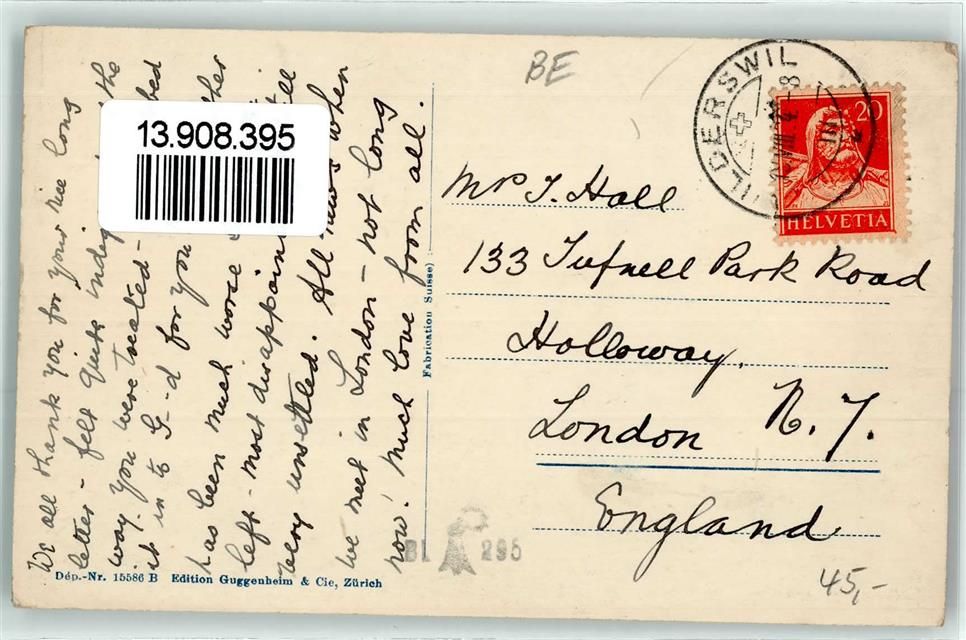 We all thank you for your nice long
letter - felt quite indig the
way you were treated - bed
it in to G--d for you ther
has been much worse
left - most disappoin
very unsettled. All news when
we meet in London - not long
now! Much love from all.
BE
WILDERSWIL
20
HELVETIA
13.908.395
Mr J. Hall
133 Tufnell Park Road
Holloway,
London N. 7.
England
Fabrication Suisse)
BL 295
Dép.-Nr. 15586 B Edition Guggenheim & Cie, Zürich
45,-